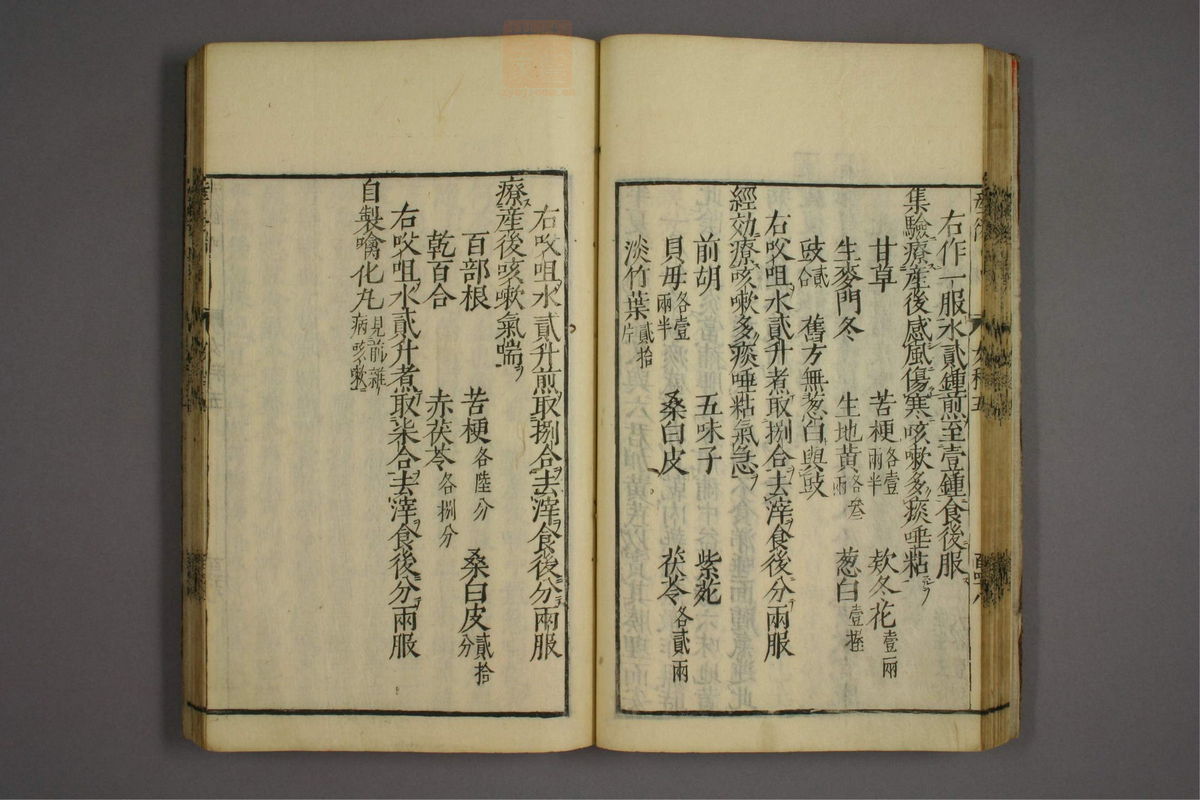 右作一服水貳鍾煎至壹鍾食後服
集驗療產後感風傷寒咳嗽多痰唾粘
甘草　苦梗各壹兩半　欵冬花壹兩
生麥門冬　生地黃各叁兩　葱白壹握
豉貳合　舊方無葱白與豉
右㕮咀水貳升煮取捌合去滓食後分兩服
經効療咳嗽多痰唾粘氣急
前胡　五味子　紫菀
貝母各壹兩半　桑白皮　茯苓各貳兩
淡竹葉貳拾片
右㕮咀水貳升煎取捌合去滓食後分兩服
療產後咳嗽氣喘
百部根　苦梗各陸分　桑白皮貳拾分
乾百合　赤茯苓各捌分
右㕮咀水貳升煮取柒合去滓食後分兩服
自製噙化丸見前雜病咳嗽